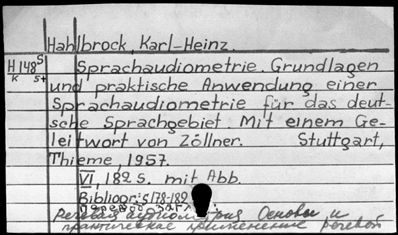 Hahlbrock, Karl-Heinz.
H148 S
к st
Sprachaudiometrie. Grundlagen
und praktische Anwendung einer
Sprachaudiometrie für das deut-
sche Sprachgebiet. Mit einem Ge-
leitwort von Zöllner. Stuttgart,
Thieme, 1957.
VI, 182 S. mit Abb.
Bibliogr.: s 178-182
Перевод загл.:
Речевая аудиометрия Основы и
практическое применение речевой